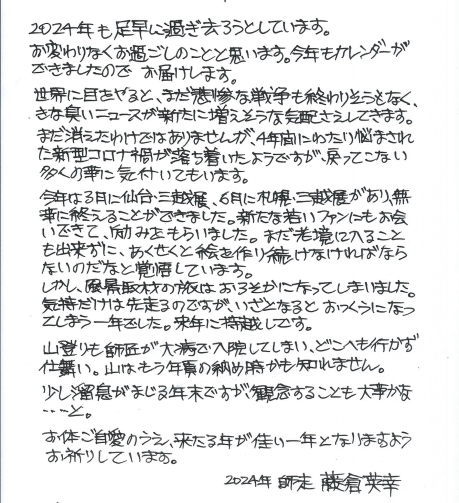 2024年も足早に過ぎ去ろうとしています。
お変わりなくお過ごしのことと思います。今年もカレンダーが
できましたので お届けします。
世界に目をやると、まだ悲惨な戦争も終わりそうもなく、
きな臭いニュースが新たに増えそうな気配さえしてきます。
まだ消えたわけではありませんが、4年間にわたり悩まされ
た新型コロナ禍が落ち着いたようですが、戻ってこない
多くの事に気付いてもいます。
今年は3月に仙台・三越展、6月に札幌・三越展があり、無
事に終えることができました。新たな若いファンにもお会
いできて、励みをもらいました。まだ老境に入ること
も出来ずに、あくせくと絵を作り続けなければなら
ないのだなと覚悟しています。
しかし、風景取材の旅はおろそかになってしまいました。
気持だけは先走るのですが、いざとなるとおっくうになっ
てしまう一年でした。来年に持越しです。
山登りも師匠が大病で入院してしまい、どこへも行かず
仕舞い。山はもう年貢の納め時かも知れません。
少し溜息がまじる年末ですが、観念することも大事かな
……と。
お体ご自愛のうえ、来たる年が佳い一年となりますよう
お祈りしています。
2024年 師走 藤倉英幸